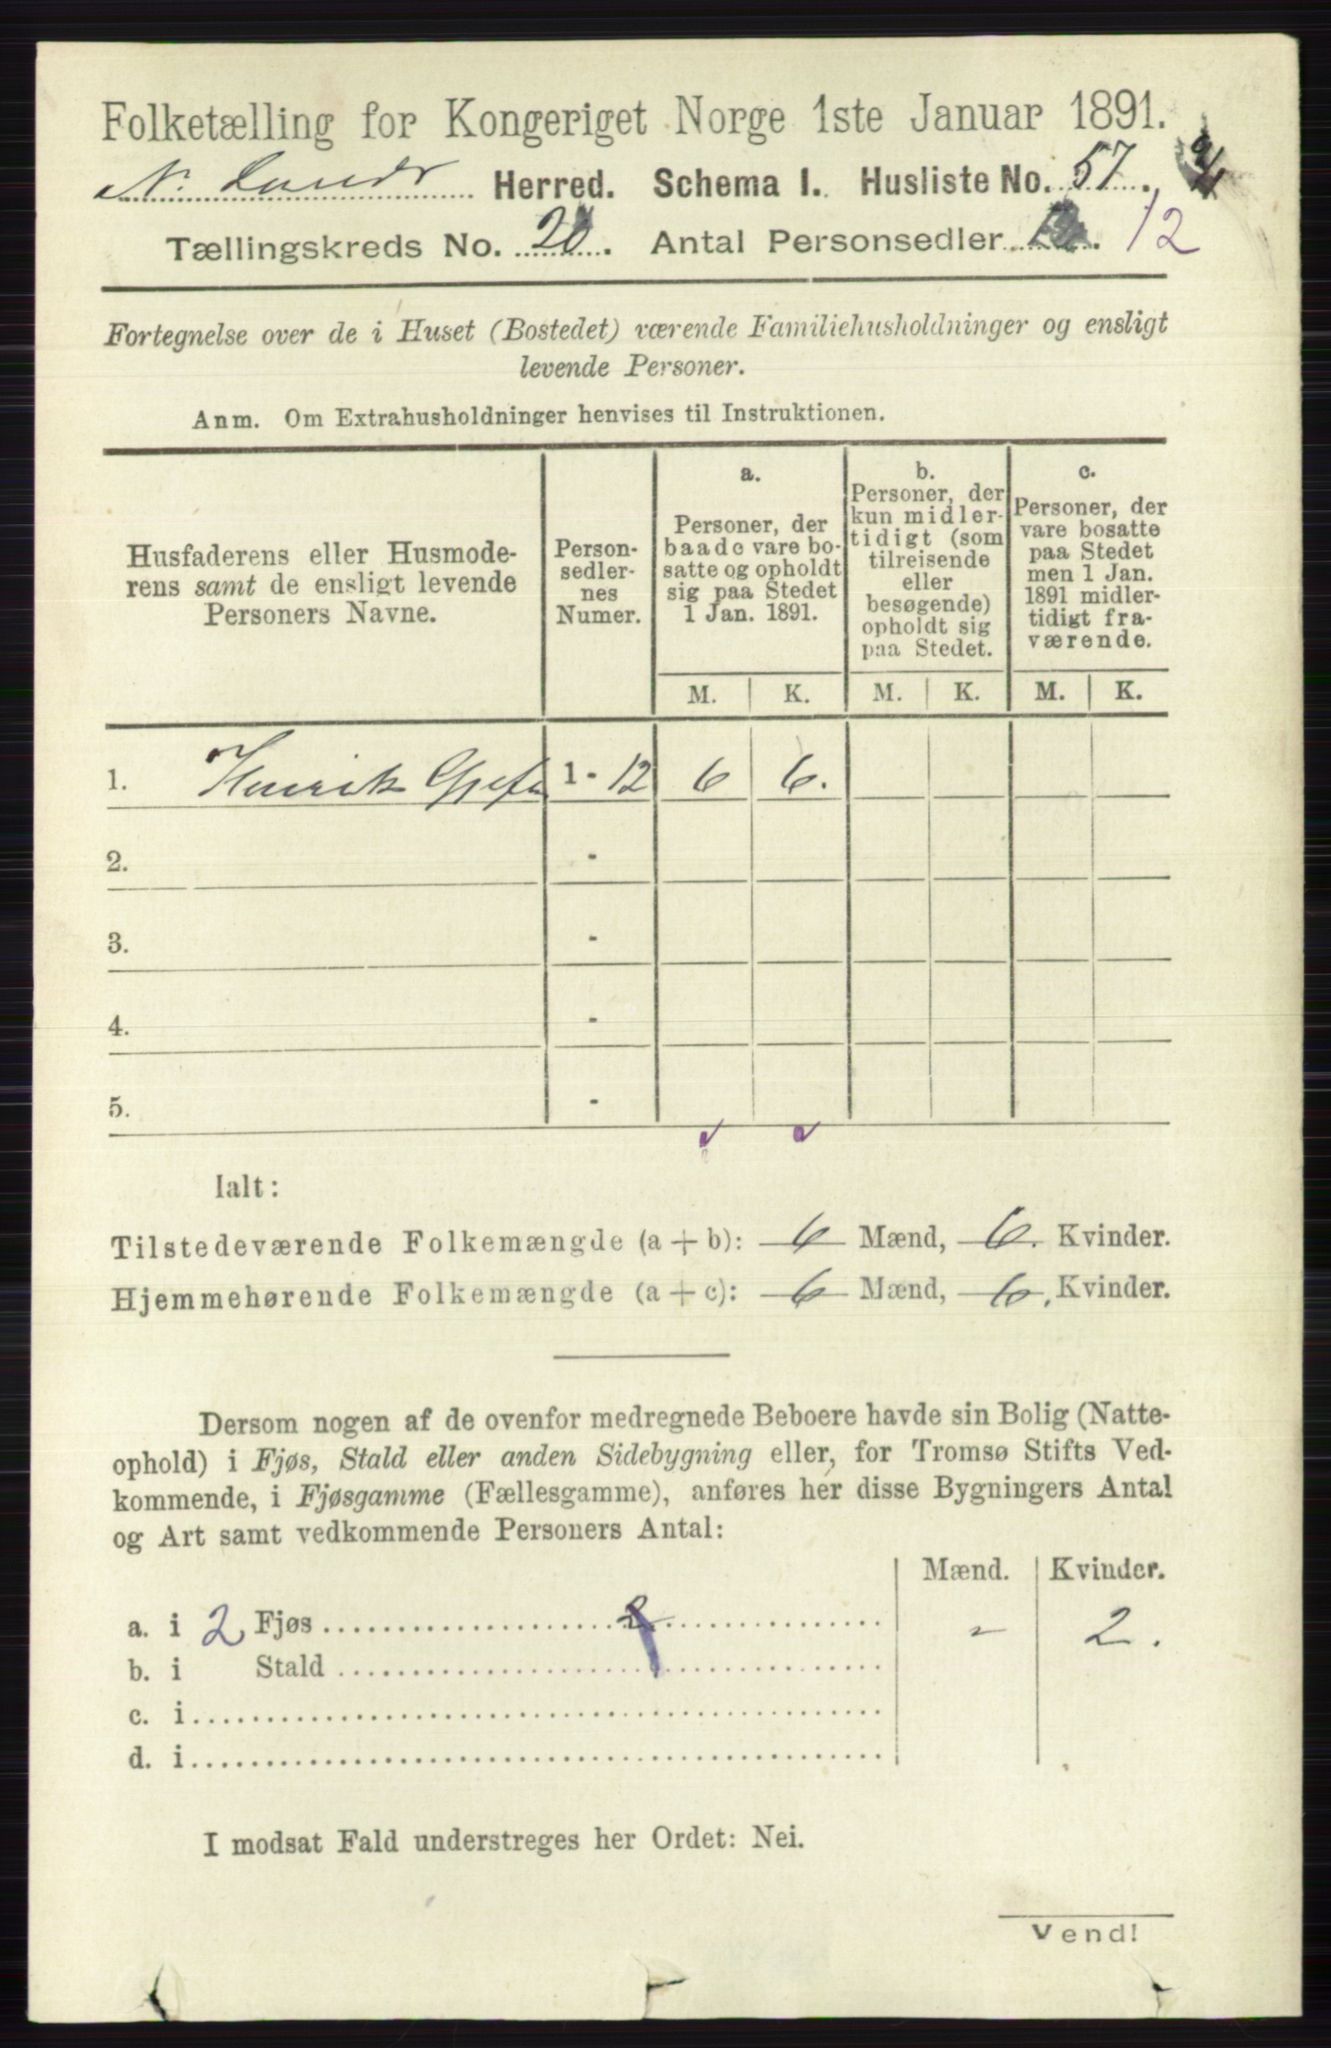 Folketælling for Kongeriget Norge 1ste Januar 1891.
N. Lands Herred. Schema I. Husliste No. 57.
Tællingskreds No. 20. Antal Personsedler 12
Fortegnelse over de i Huset (Bostedet) værende Familiehusholdninger og ensligt
levende Personer.
Anm. Om Extrahusholdninger henvises til Instruktionen.
Husfaderens eller Husmode-
rens samt de ensligt levende
Personers Navne.
Person-
sedler-
nes
Numer.
a.
Personer, der
baade vare bo-
satte og opholdt
sig paa Stedet
1 Jan. 1891.
b.
Personer, der
kun midler-
tidigt (som
tilreisende
eller
besøgende)
opholdt sig
paa Stedet.
c.
Personer, der
vare bosatte
paa Stedet
men 1 Jan.
1891 midler-
tidigt fra-
værende.
M. K. M. K. M. K.
1. Henrik 1 - 12 6 6.
2. -
3. -
4. -
5. -
Ialt:
Tilstedeværende Folkemængde (a + b): 6 Mænd, 6. Kvinder.
Hjemmehørende Folkemængde (a + c): 6 Mænd, 6. Kvinder.
Dersom nogen af de ovenfor medregnede Beboere havde sin Bolig (Natte-
ophold) i Fjøs, Stald eller anden Sidebygning eller, for Tromsø Stifts Ved-
kommende, i Fjøsgamme (Fællesgamme), anføres her disse Bygningers Antal
og Art samt vedkommende Personers Antal:
Mænd. Kvinder.
a. i 2 Fjøs 2 - 2.
b. i Stald
c. i
d. i
I modsat Fald understreges her Ordet: Nei.
Vend!